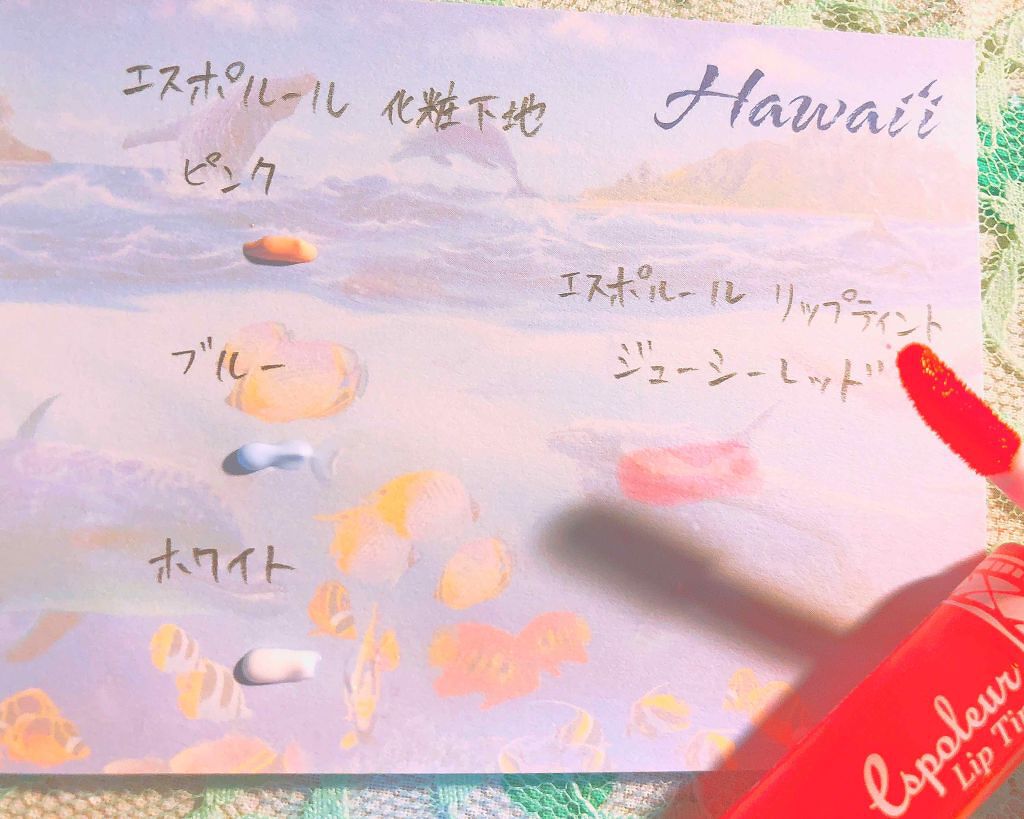 Hawaii
エスポルール 化粧下地
ピンク
エスポルール リップティント
ジューシーレッド
ブルー
ホワイト
Espoleur
Lip Tin